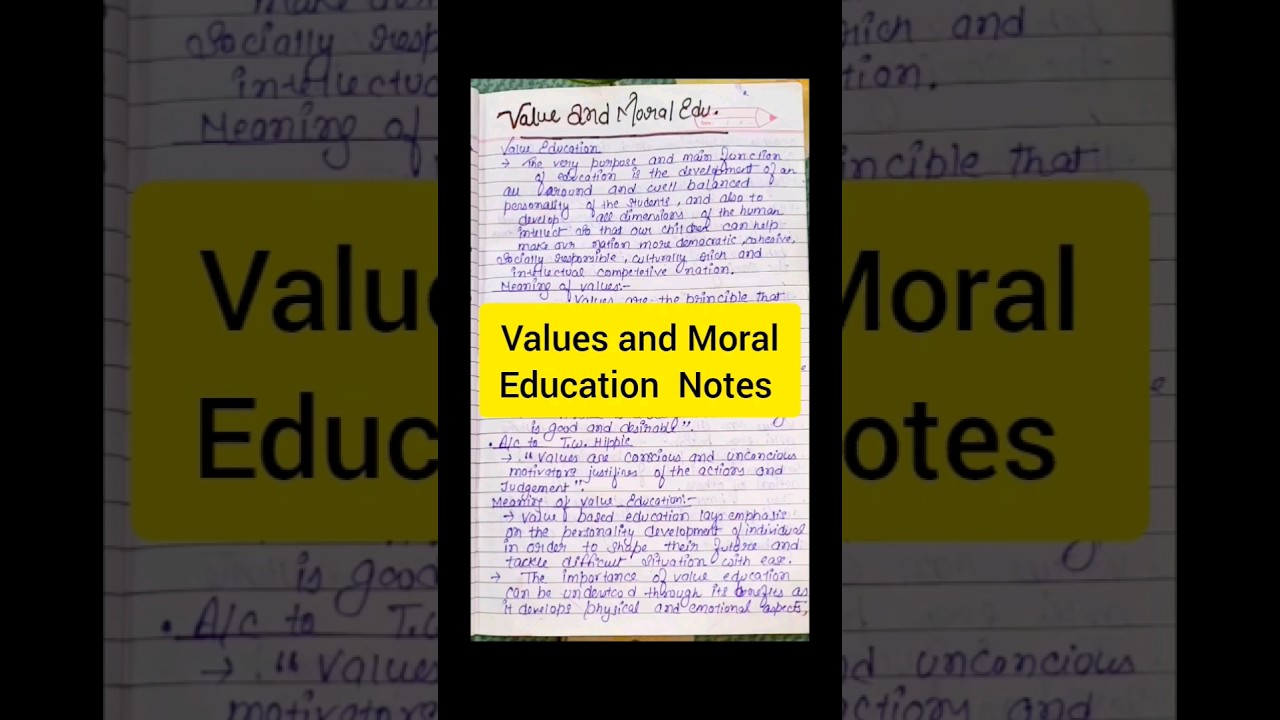 Value and Moral Edu.
Value Education
→ The very purpose and main function
of education is the development of an
all around and well balanced
personality of the students, and also to
develop all dimensions of the human
intellect so that our children can help
make our nation more democratic, cohesive,
socially responsible, culturally rich and
intellectual competetive nation.
Meaning of values:-
Values are the principle that
Values and Moral
Education Notes
is good and desirable".
• A/c to T.W. Hippie
→ "Values are conscious and unconcious
motivators justifines of the actions and
Judgement".
Meaning of value Education:-
→ Value based education lays emphasis
on the personality development of individual
in order to shape their future and
tackle difficult situation with ease.
→ The importance of value education
can be undewtood through its benefies as
it develops physical and emotional aspects,